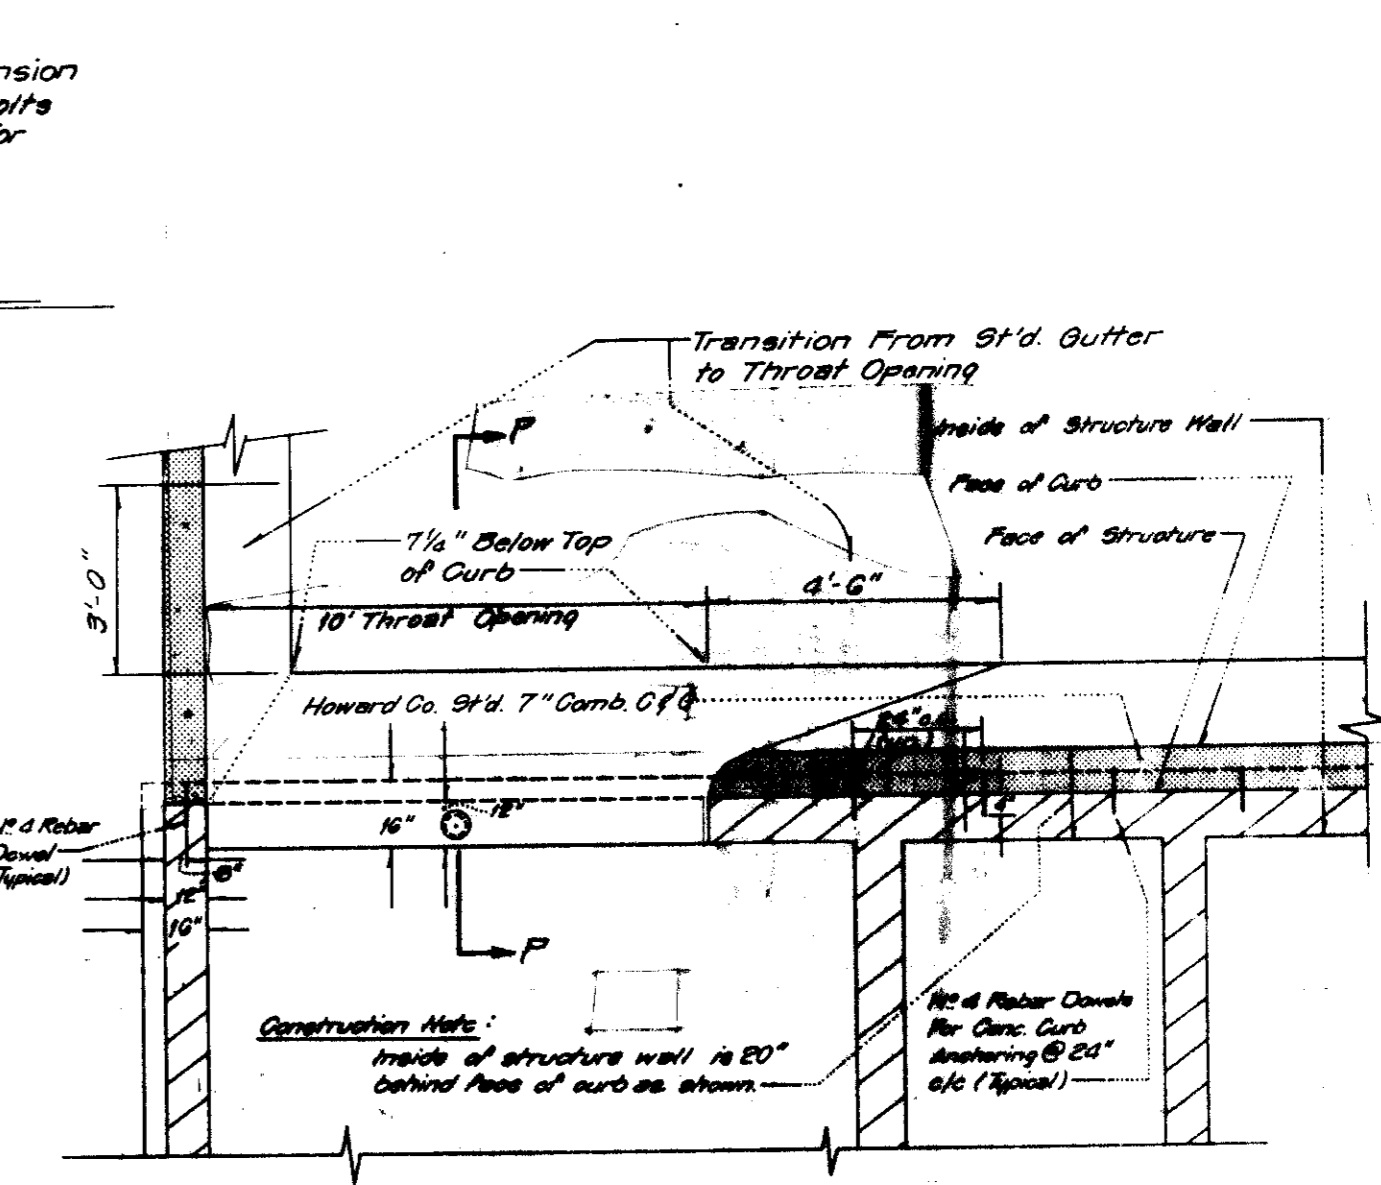 nsion
olts
for
Transition From St'd. Gutter
to Throat Opening
P
Inside of Structure Wall
Face of Curb
Face of Structure
7 1/4" Below Top
of Curb
3'-0"
4'-6"
10' Throat Opening
Howard Co. St'd. 7" Comb. C & G
24" o.c.
(typ.)
4"
16"
12"
Nº 4 Rebar
Dowel
(Typical)
8"
12"
16"
P
Construction Note:
Inside of structure wall is 20"
behind face of curb as shown.
Nº 4 Rebar Dowels
For Conc. Curb
Anchoring @ 24"
c/c (Typical)